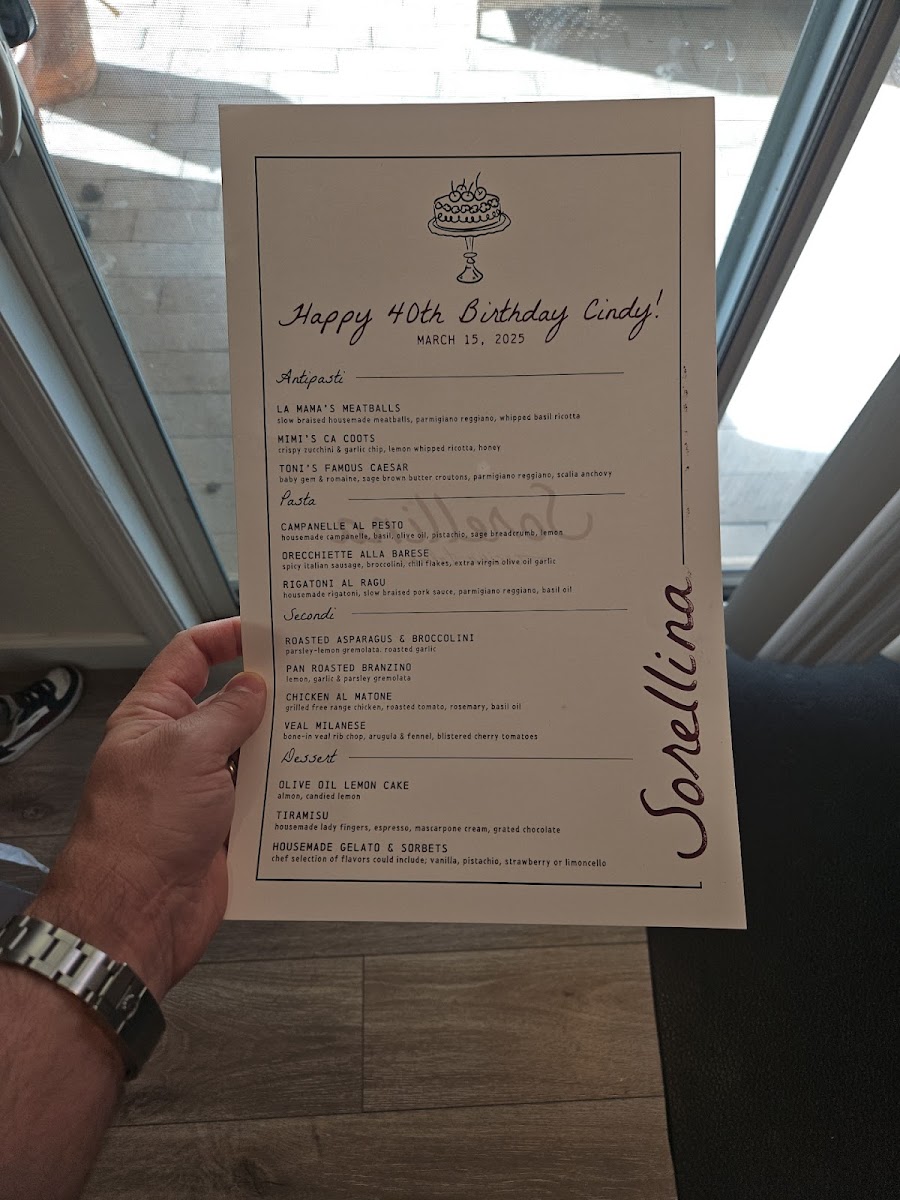 Happy 40th Birthday Cindy!
MARCH 15, 2025
Antipasti
LA MAMA'S MEATBALLS
slow braised housemade meatballs, parmigiano reggiano, whipped basil ricotta
MIMI'S CA COOTS
crispy zucchini & garlic chip, lemon whipped ricotta, honey
TONI'S FAMOUS CAESAR
baby gem & romaine, sage brown butter croutons, parmigiano reggiano, scalia anchovy
Pasta
CAMPANELLE AL PESTO
housemade campanelle, basil, olive oil, pistachio, sage breadcrumb, lemon
ORECCHIETTE ALLA BARESE
spicy italian sausage, broccolini, chili flakes, extra virgin olive oil garlic
RIGATONI AL RAGU
housemade rigatoni, slow braised pork sauce, parmigiano reggiano, basil oil
Secondi
ROASTED ASPARAGUS & BROCCOLINI
parsley-lemon gremolata, roasted garlic
PAN ROASTED BRANZINO
lemon, garlic & parsley gremolata
CHICKEN AL MATONE
grilled free range chicken, roasted tomato, rosemary, basil oil
VEAL MILANESE
bone-in veal rib chop, arugula & fennel, blistered cherry tomatoes
Dessert
OLIVE OIL LEMON CAKE
almon, candied lemon
TIRAMISU
housemade lady fingers, espresso, mascarpone cream, grated chocolate
HOUSEMADE GELATO & SORBETS
chef selection of flavors could include; vanilla, pistachio, strawberry or limoncello
Sorellina
Sorellina